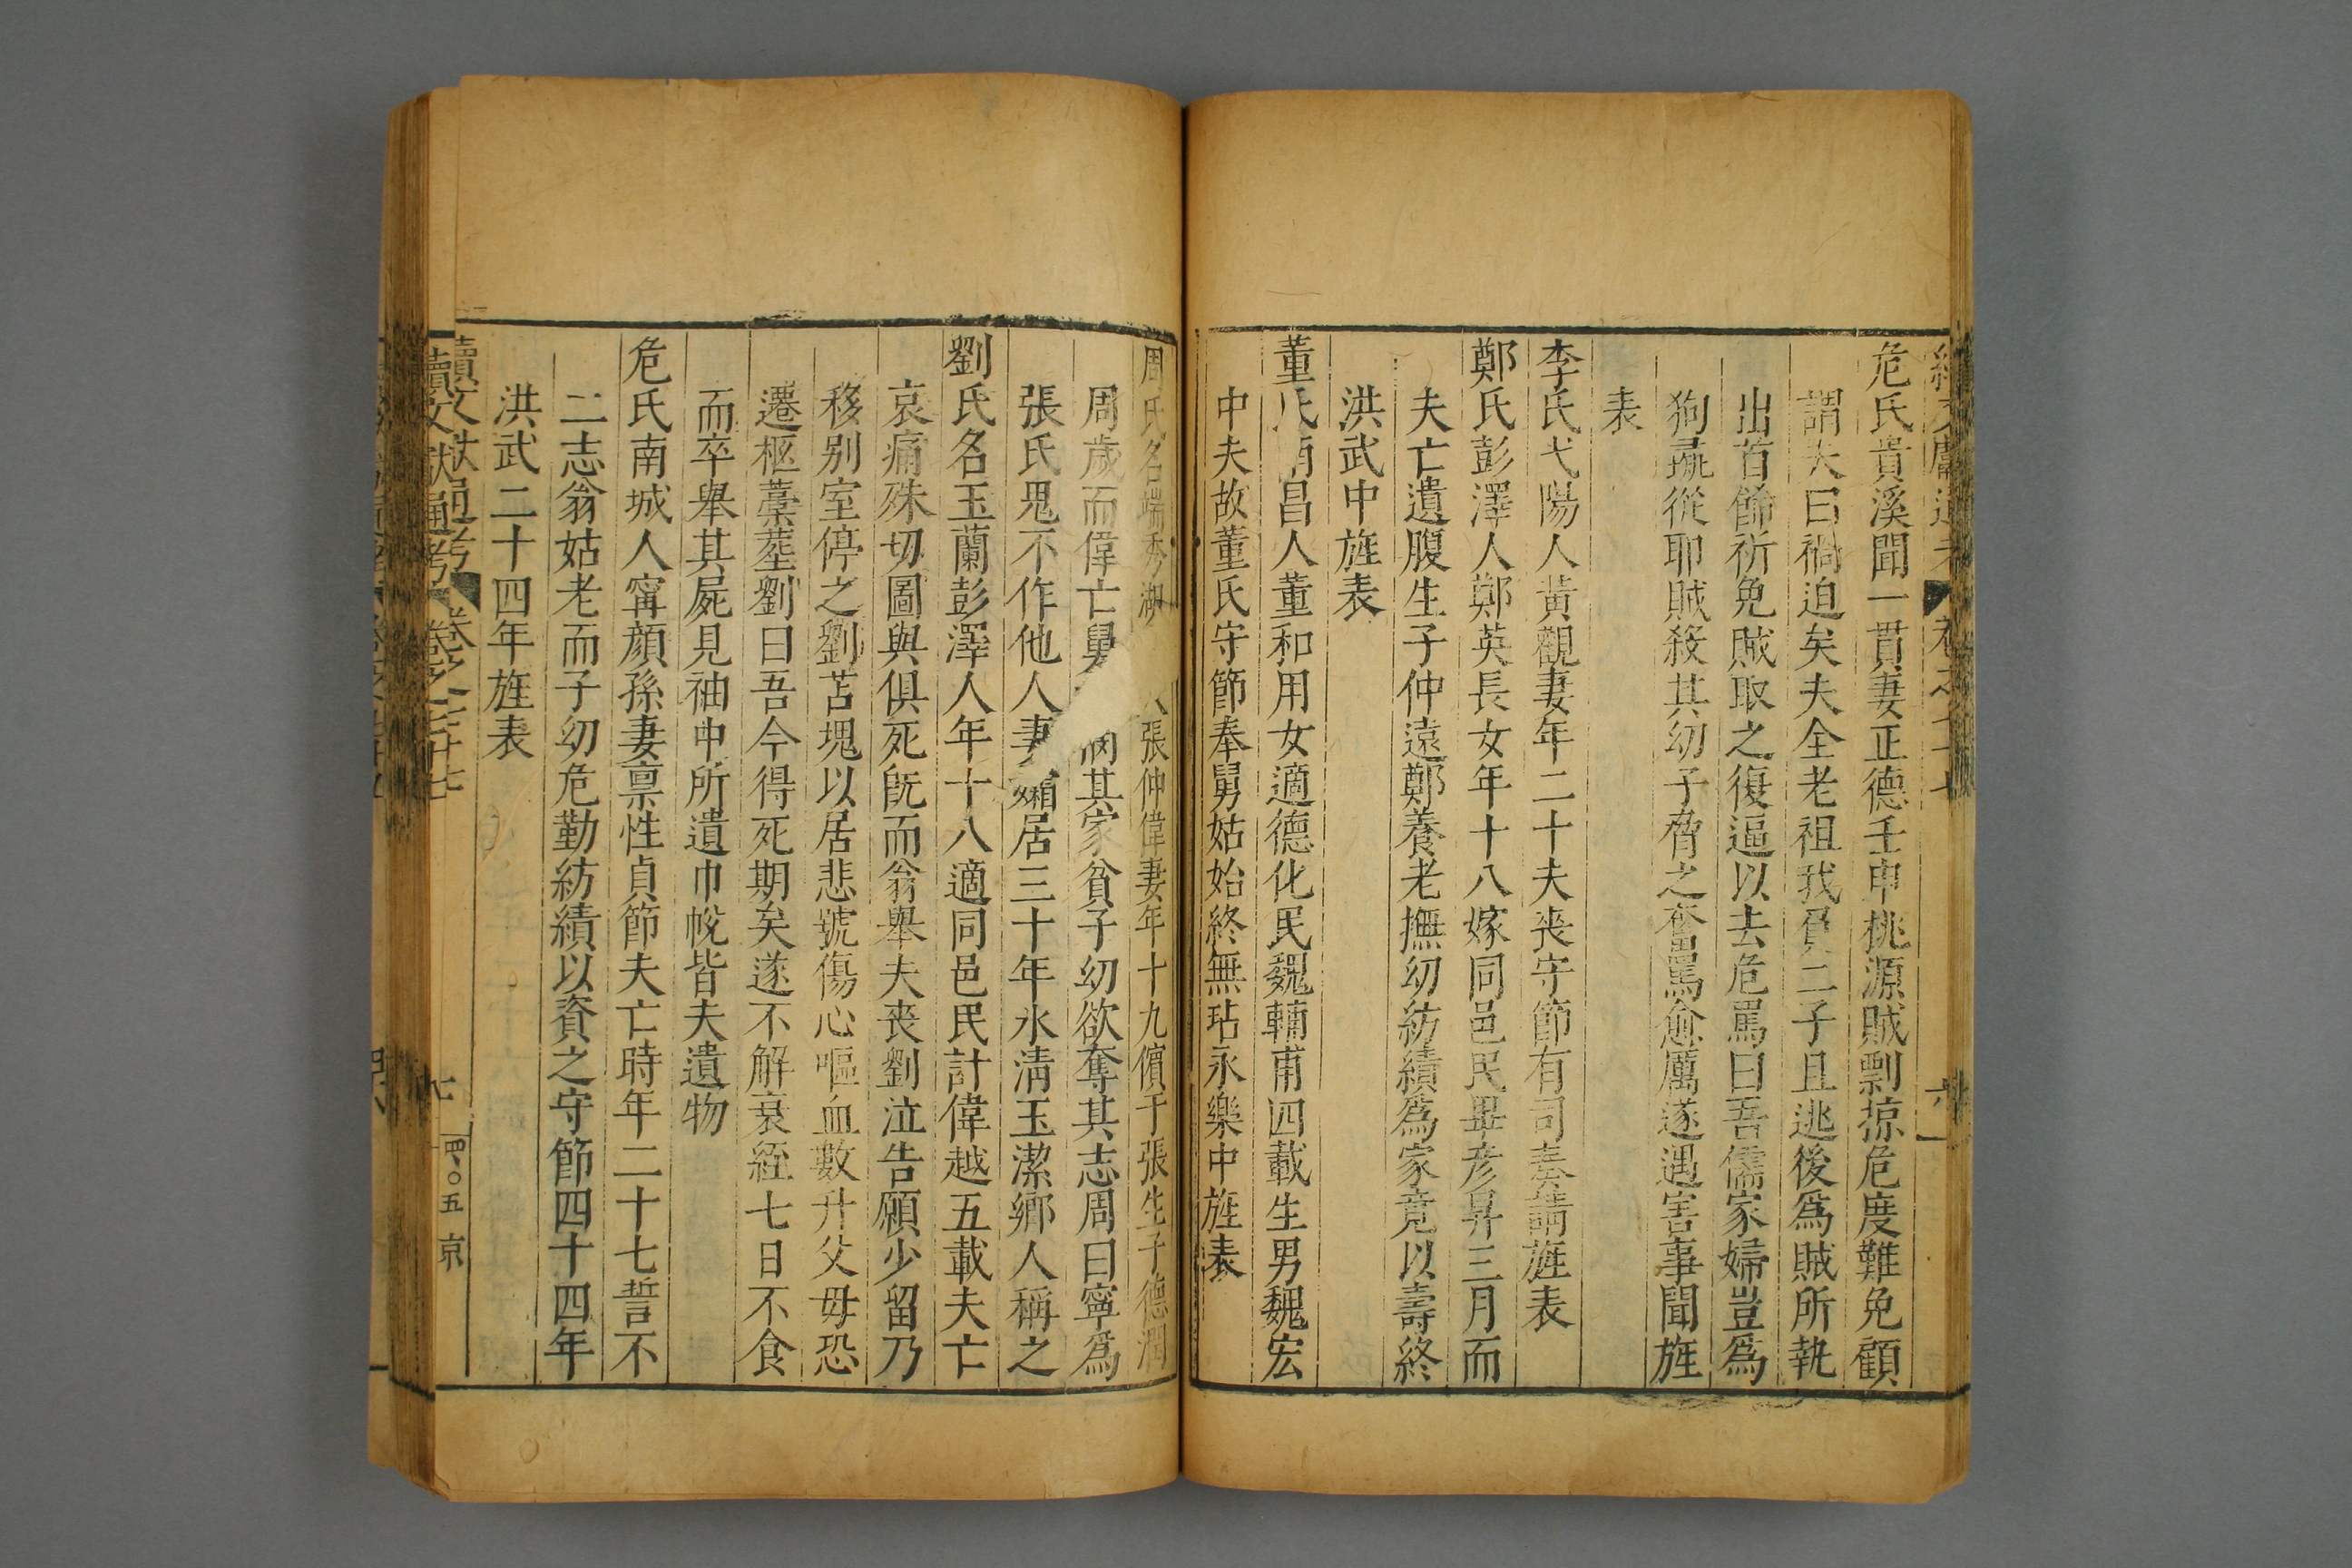 危氏貴溪聞一貫妻正德壬申桃源賊剽掠危度難免顧
謂夫曰禍迫矣夫全老祖我負二子且逃後為賊所執
出首餙祈免賊取之復逼以去危罵曰吾儒家婦豈為
狗彘從耶賊殺其幼子脅之奮罵愈厲遂遇害事聞旌
表
李氏弋陽人黃觀妻年二十夫丧守節有司奏請旌表
鄭氏彭澤人鄭英長女年十八嫁同邑民畢彦昇三月而
夫亡遺腹生子仲遠鄭養老撫幼紡績為家竟以壽終
洪武中旌表
董氏昌人董和用女適德化民魏輔甫四載生男魏宏
中夫故董氏守節奉舅姑始終無玷永樂中旌表
周氏名端秀湖張仲偉妻年十九儐于張生子德潤
周歲而偉亡舅其家貧子幼欲奪其志周曰寧為
張氏鬼不作他人妻孀居三十年氷清玉潔鄉人稱之
劉氏名玉蘭彭澤人年十八適同邑民計偉越五載夫亡
哀痛殊切圖與俱死旣而翁舉夫丧劉泣告願少留乃
移别室停之劉苫塊以居悲號傷心嘔血數升父母恐
遷柩藁塟劉曰吾今得死期矣遂不解衰絰七日不食
而卒舉其屍見袖中所遺巾帨皆夫遺物
危氏南城人甯顔孫妻禀性貞節夫亡時年二十七誓不
二志翁姑老而子幼危勤紡績以資之守節四十四年
洪武二十四年旌表
續文獻通考 卷之七十七 七 四〇五 京